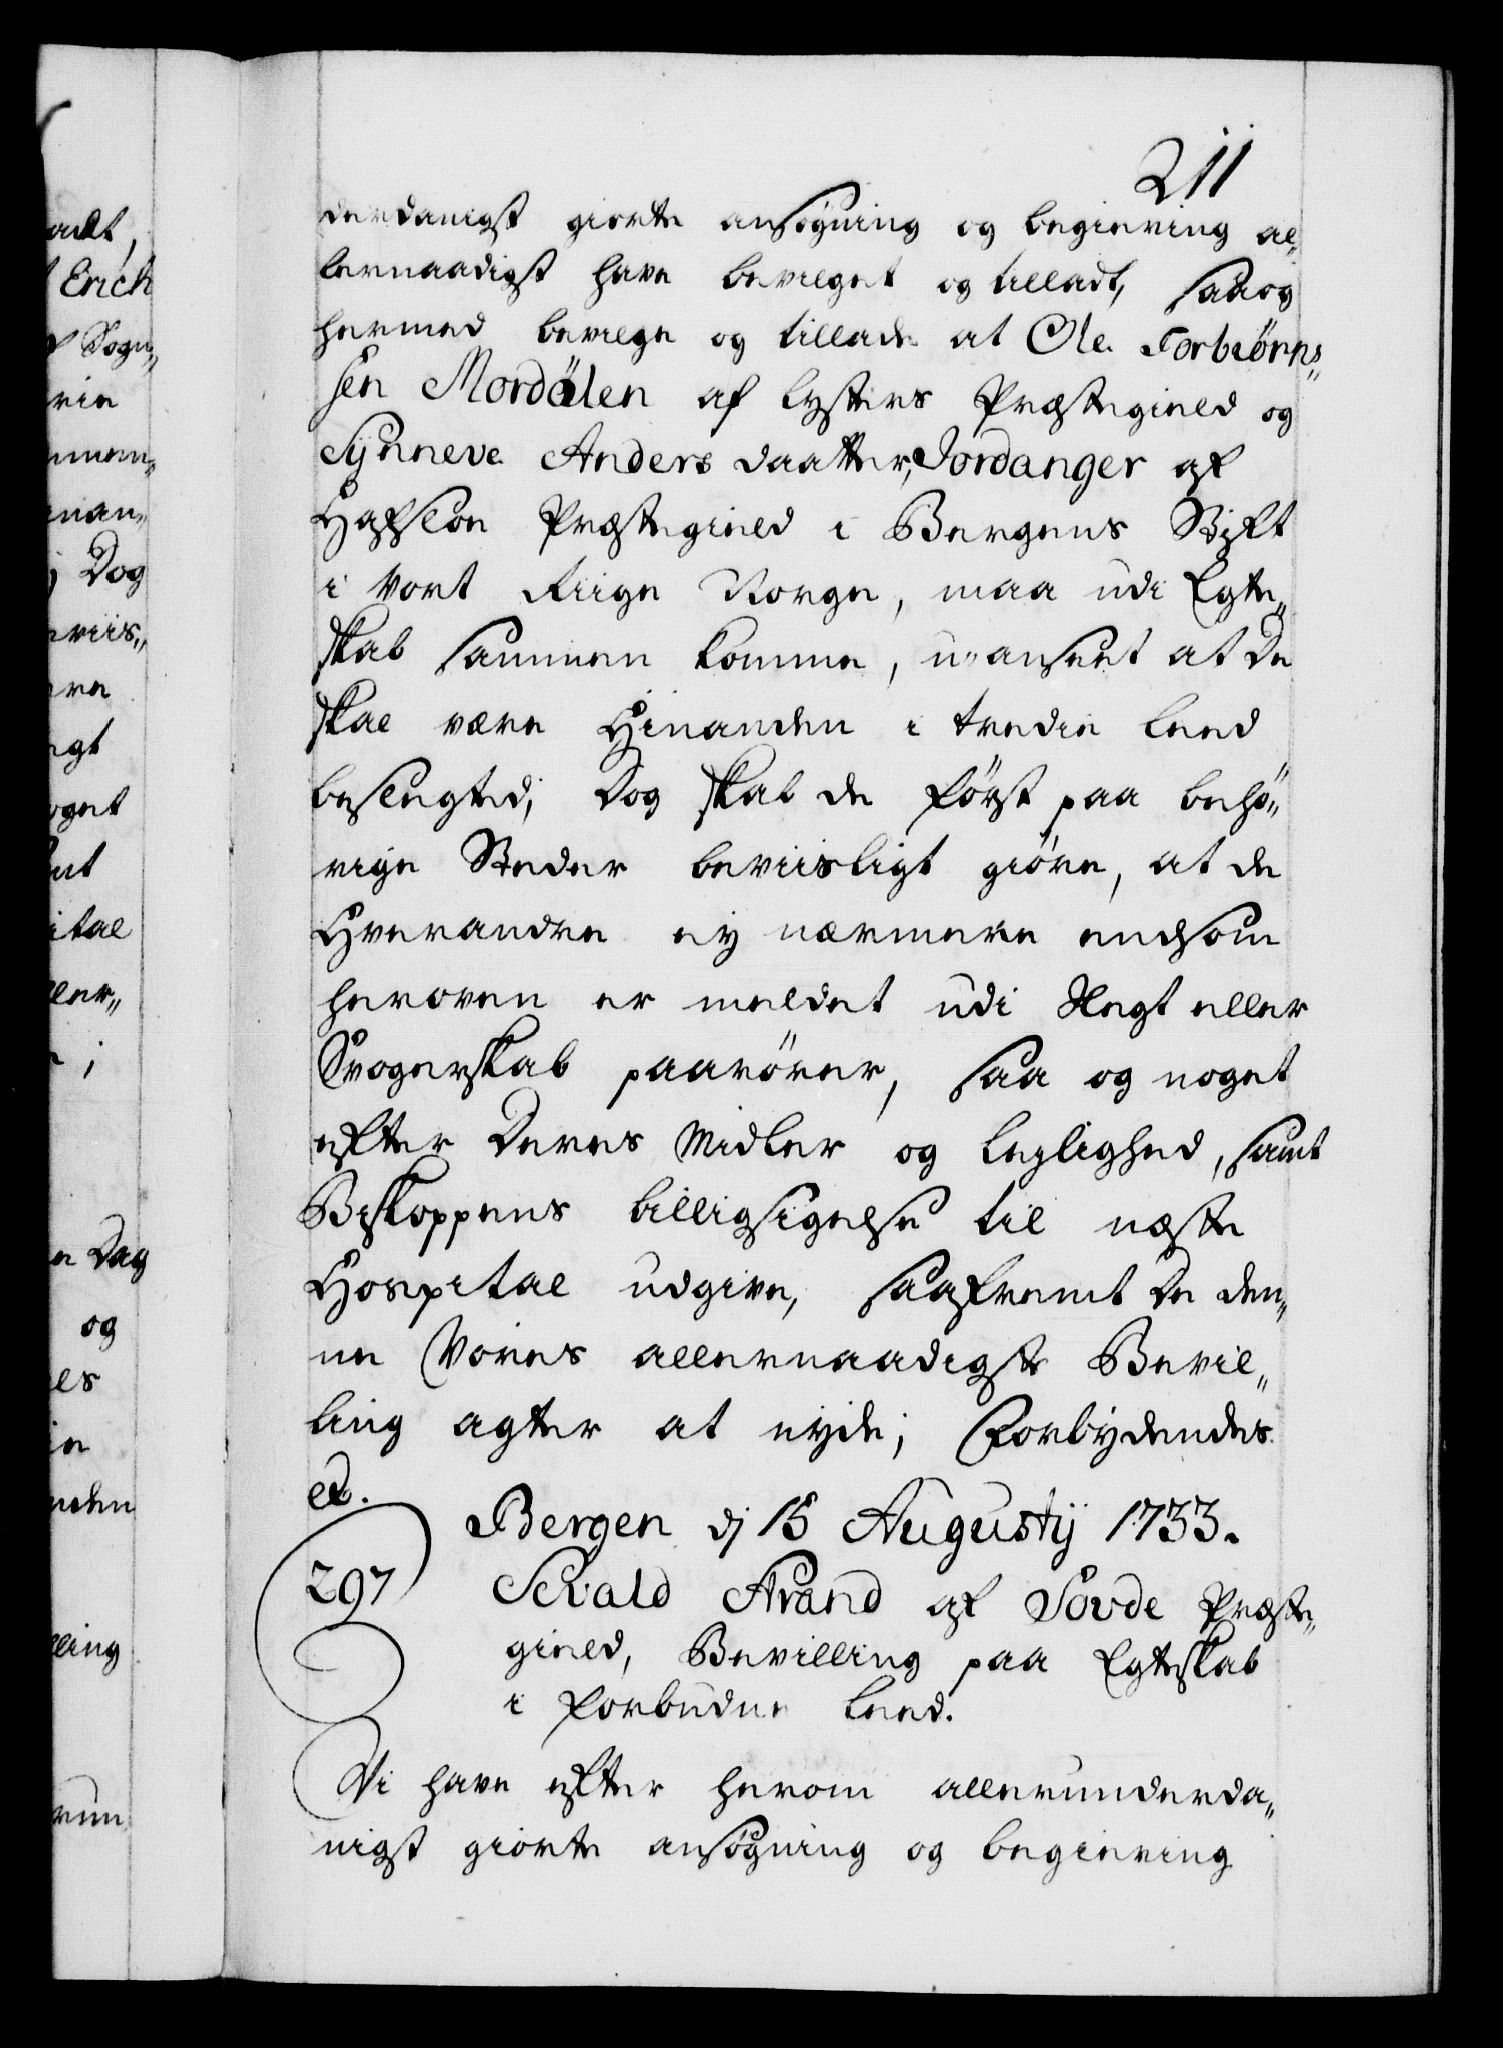 211
derdanigst giorte ansøgning og begiering al„
lernaadigst have bevilget og tilladt, saa og
hermed bevilge og tillade at Ole Torbiørn„
sen Mordalen af Lysters Præstegield og
Synneve Anders daatter, Jordanger af
Hafsloe Præstegield i Bergens Stift
i vort Riige Norge, maa udi Egte„
skab sammen komme, uanseet at de
skal være Hinanden i tredie Leed
beslegted; Dog skal de først paa behö„
rige Steder beviisligt giöre, at de
Hverandre ey nærmere end som
heroven er meldet udi Slegt eller
Svogerskab paarörer, saa og noget
efter deres Midler og Leylighed, samt
Biskoppens billigsigelse til næste
Hospital udgive, saafremt de den„
ne Vores allernaadigste Bevil„
ling agter at nyde; Forbydendes
etc.
Bergen dj 15 Augustij 1733.
297 Sevald Arand af Sovde Præste„
gield, Bevilling paa Egteskab
i forbudne Leed.
Vi have efter herom allerunderda„
nigst giorte ansøgning og begiering
adt,
Erich
Sogn„
Dog
viis„
ogt
oget
ital
ller„
Dag
og
les
nden
lling